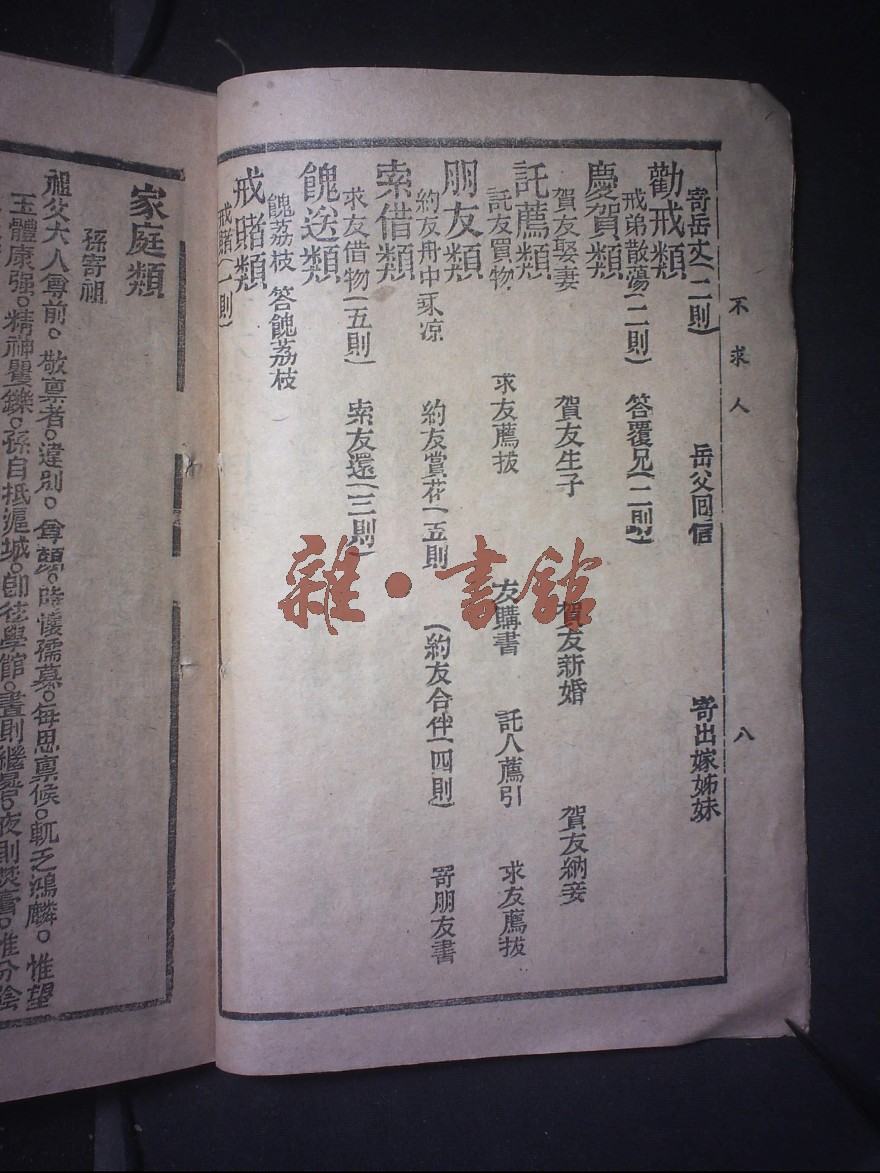 不求人 八
寄岳丈(二則) 岳父回信 寄出嫁姊妹
勸戒類
戒弟散蕩(二則) 答覆兄(二則)
慶賀類
賀友娶妻 賀友生子 賀友新婚 賀友納妾
託薦類
託友買物 求友薦拔 友購書 託人薦引 求友薦拔
朋友類
約友舟中乘凉 約友賞花(五則 (約友合伴(四則) 寄朋友書
索借類
求友借物(五則) 索友還(三則)
餽送類
餽荔枝 答餽荔枝
戒賭類
戒賭(一則)
雜·書館
家庭類
孫寄祖
祖父大人尊前。敬禀者。違別。尊顏。時懷孺慕。每思禀候。軏乏鴻麟。惟望
玉體康强。精神矍鑠。孫自抵滬城。卽在學館。晝則繼晷。夜則焚膏。惟分陰